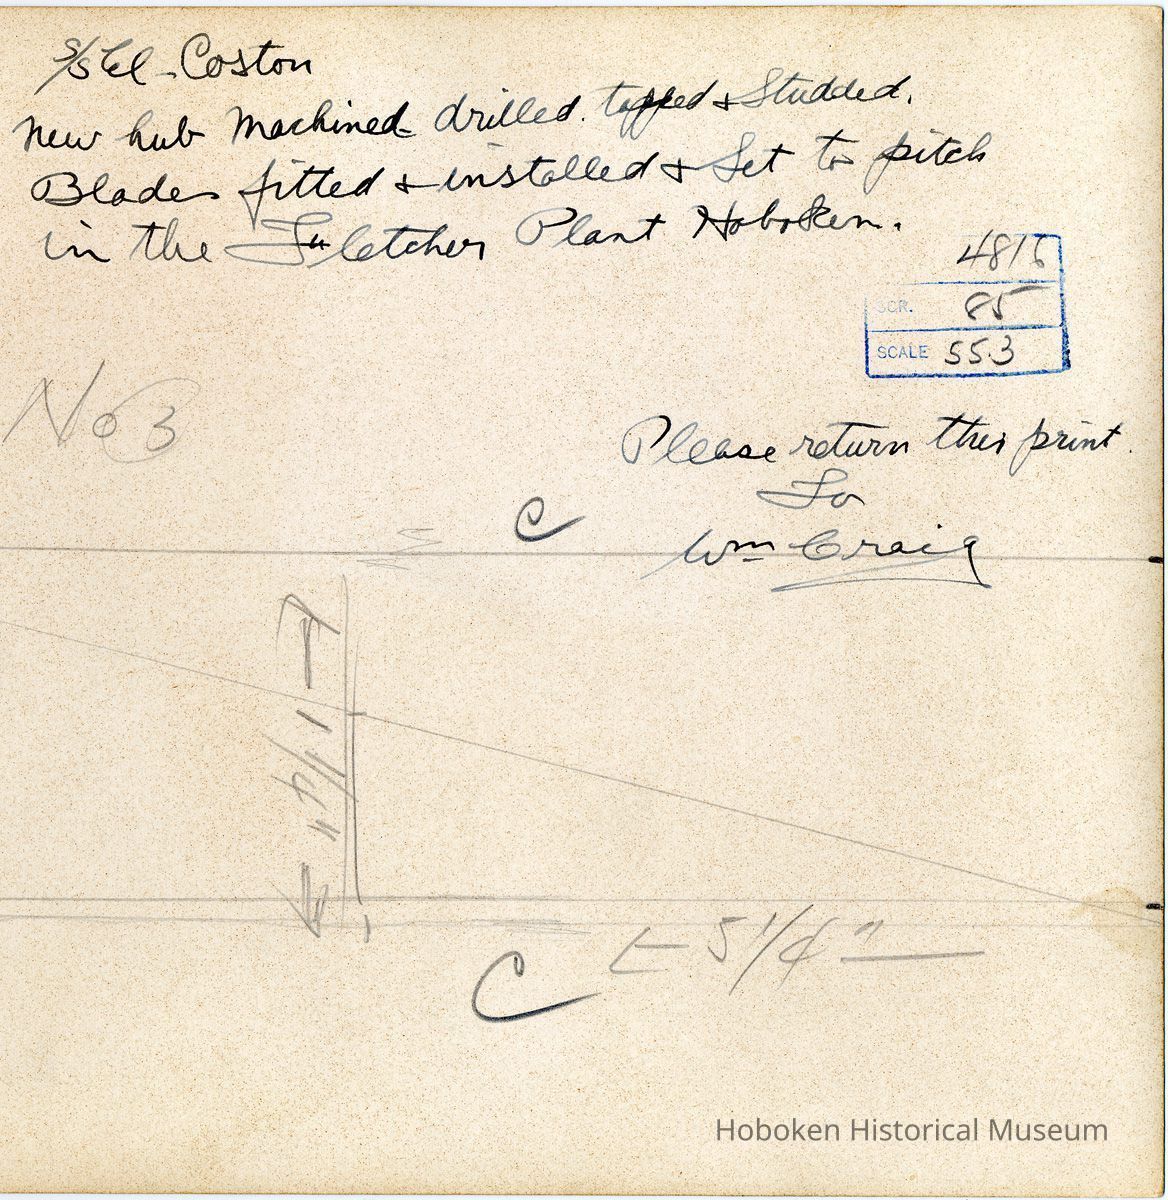 S/S El-Coston
New hub Machined drilled. tapped & Studded.
Blades fitted & installed & Set to pitch
in the Fletcher Plant Hoboken.
4816
SCR. 85
SCALE 553
No 3
Please return this print.
To
Wm Craig
C
4 1/4"
C
5 1/4"
Hoboken Historical Museum